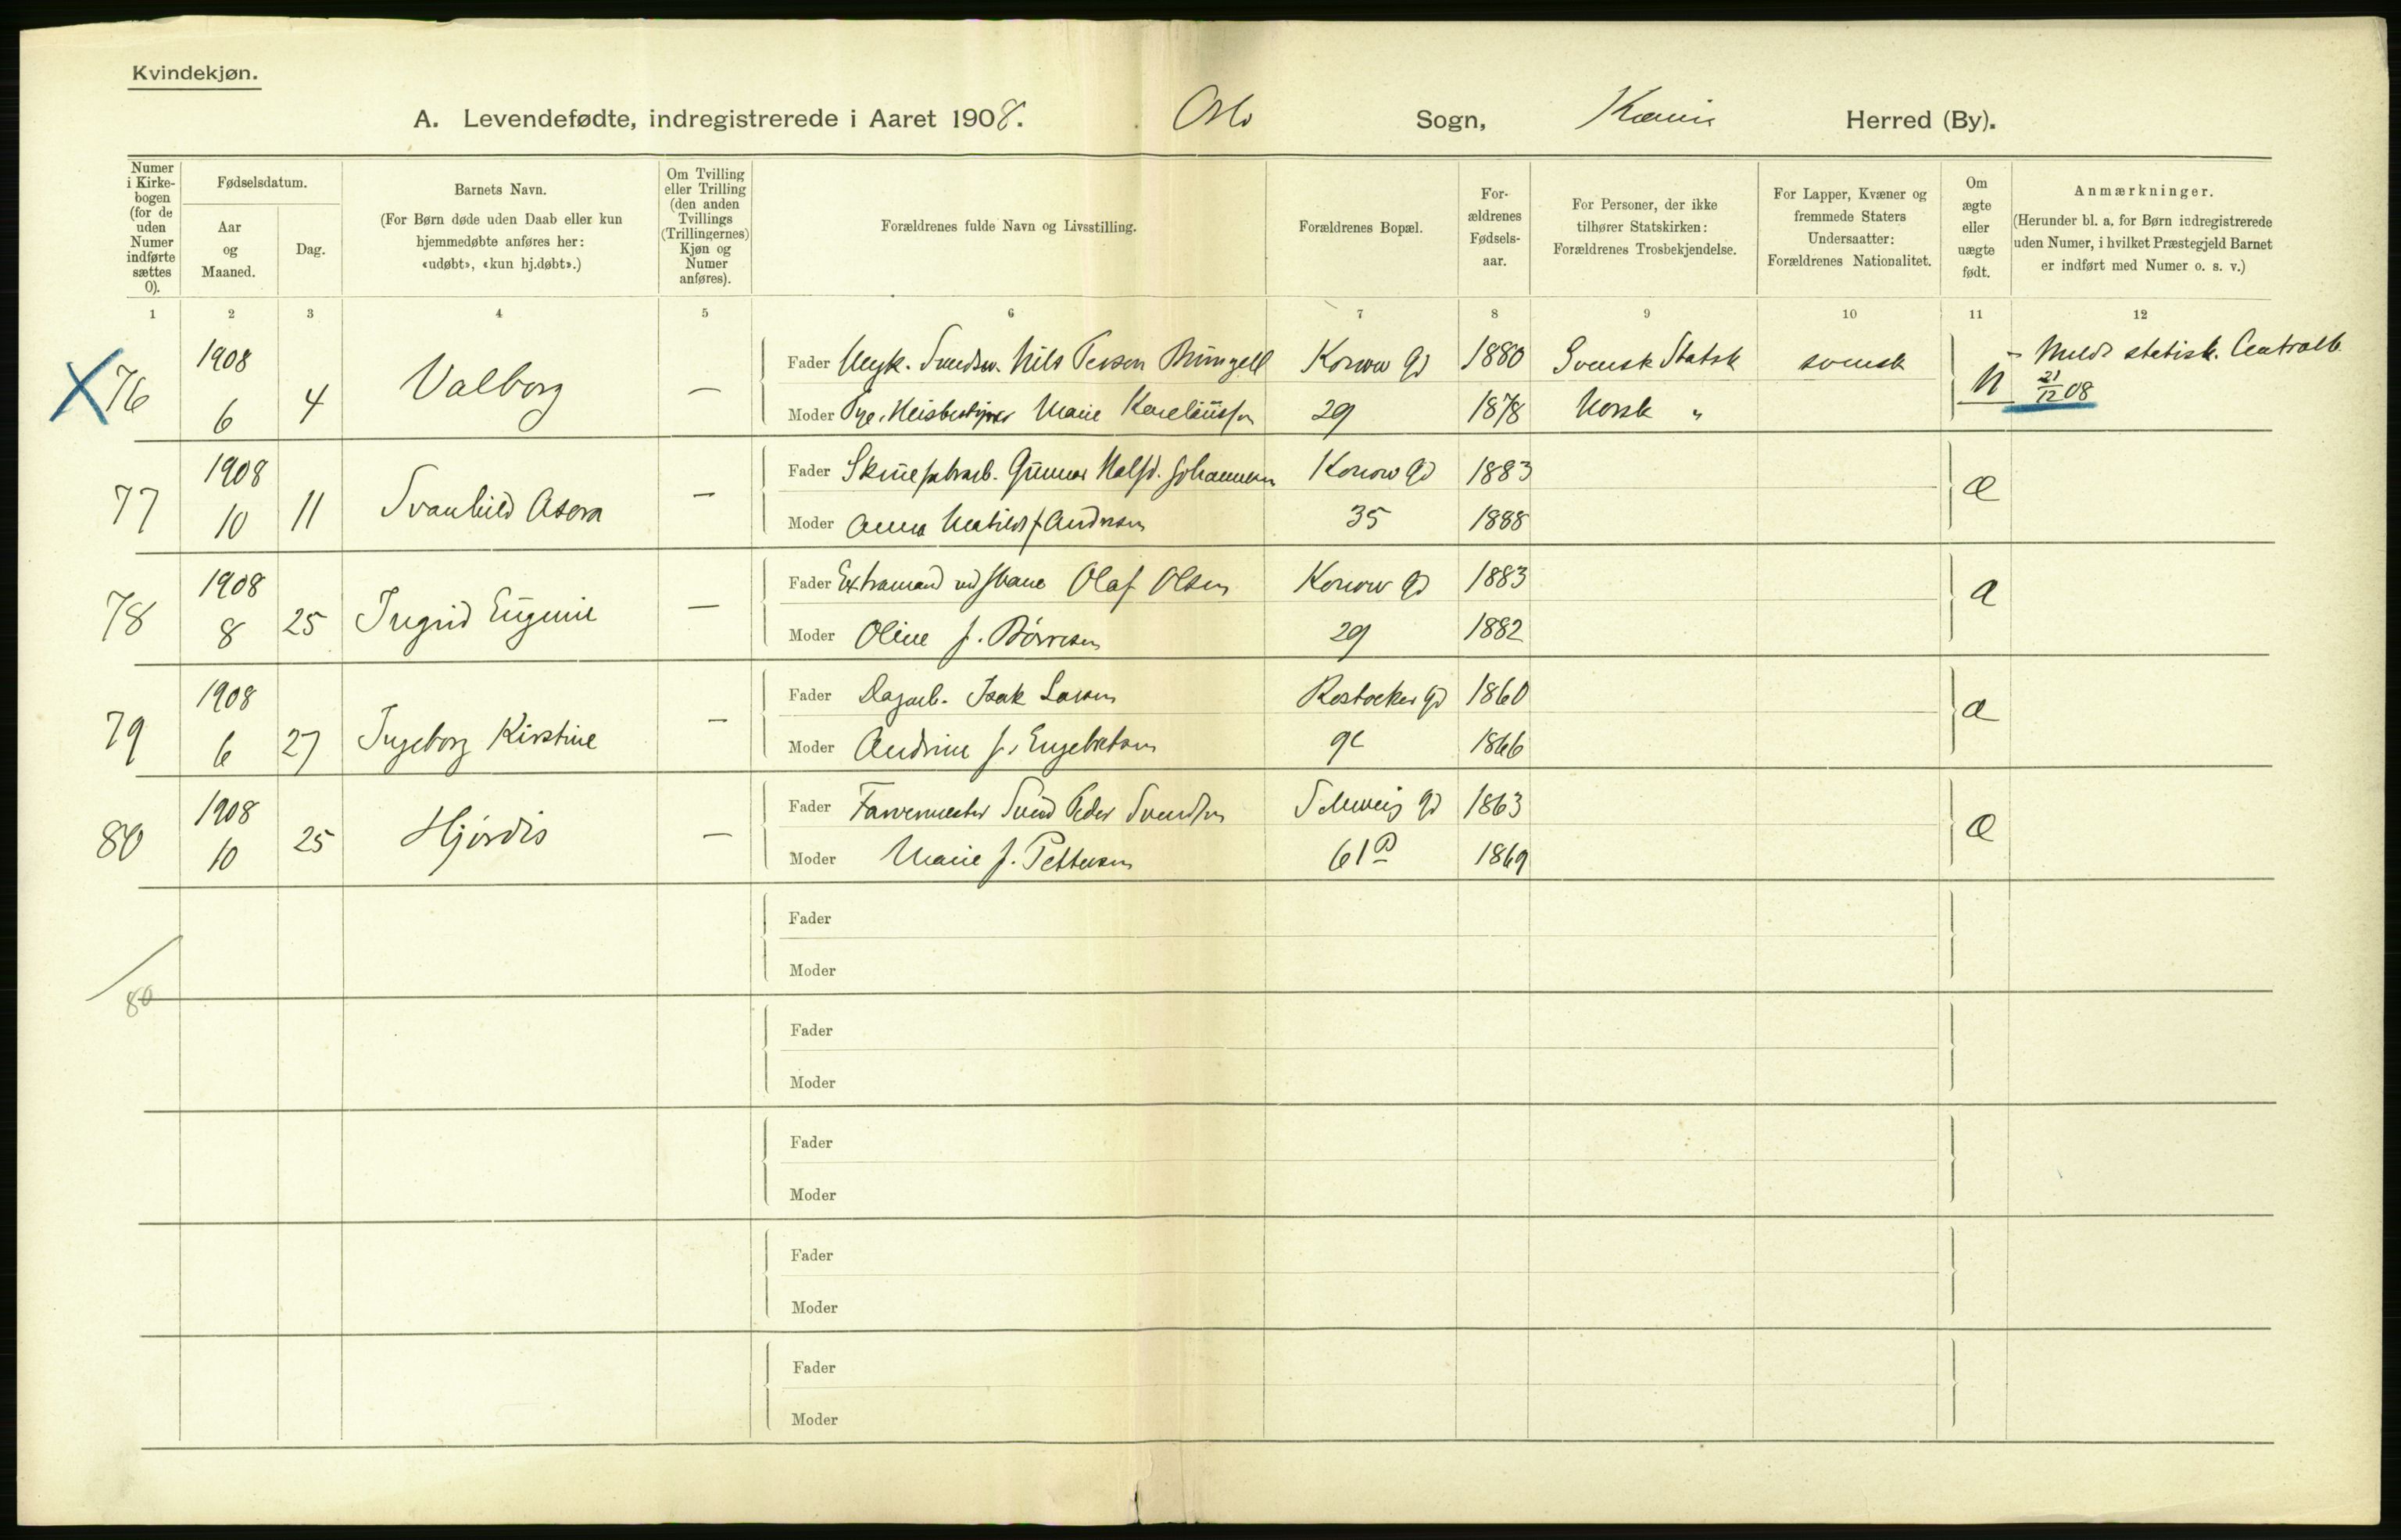 Kvindekjøn.
A. Levendefødte, indregistrerede i Aaret 1908. Oslo Sogn, Herred (By).
Numer i Kirke-bogen (for de uden Numer indførte sættes 0).
Fødselsdatum.
Aar og Maaned.
Dag.
Barnets Navn.
(For Børn døde uden Daab eller kun hjemmedøbte anføres her: «udøbt», «kun hj.døbt».)
Om Tvilling eller Trilling (den anden Tvillings (Trillingernes) Kjøn og Numer anføres).
Forældrenes fulde Navn og Livsstilling.
Forældrenes Bopæl.
For-ældrenes Fødsels-aar.
For Personer, der ikke tilhører Statskirken: Forældrenes Trosbekjendelse.
For Lapper, Kvæner og fremmede Staters Undersaatter: Forældrenes Nationalitet.
Om ægte eller uægte født.
Anmærkninger.
(Herunder bl. a. for Børn indregistrerede uden Numer, i hvilket Præstegjeld Barnet er indført med Numer o. s. v.)
1 2 3 4 5 6 7 8 9 10 11 12
X 76 1908 6 4 Valborg —
Fader Nils Konow Gd 1880 Svensk Statsk svensk
Moder Marie 29 1878 Norsk "
- Meldt statisk. Centralb. 21/12 08
77 1908 10 11 Svanhild —
Fader Gunnar Halfd. Johannesen Konow Gd 1883
Moder Anna Matilde f. Andersen 35 1888
æ
78 1908 8 25 Ingrid Eugenie —
Fader Extramand ved Olaf Olsen Konow Gd 1883
Moder Oline f. Börresen 29 1882
æ
79 1908 6 27 Ingeborg Kirstine —
Fader Dagarb. Isak Larsen Gd 1860
Moder Andrine f. Engebretsen 9c 1866
æ
80 1908 10 25 Hjördis —
Fader Farvermester Svend Peder Svendsen Schweig Gd 1863
Moder Marie f. Pettersen 61 1869
æ
Fader
Moder
80
Fader
Moder
Fader
Moder
Fader
Moder
Fader
Moder